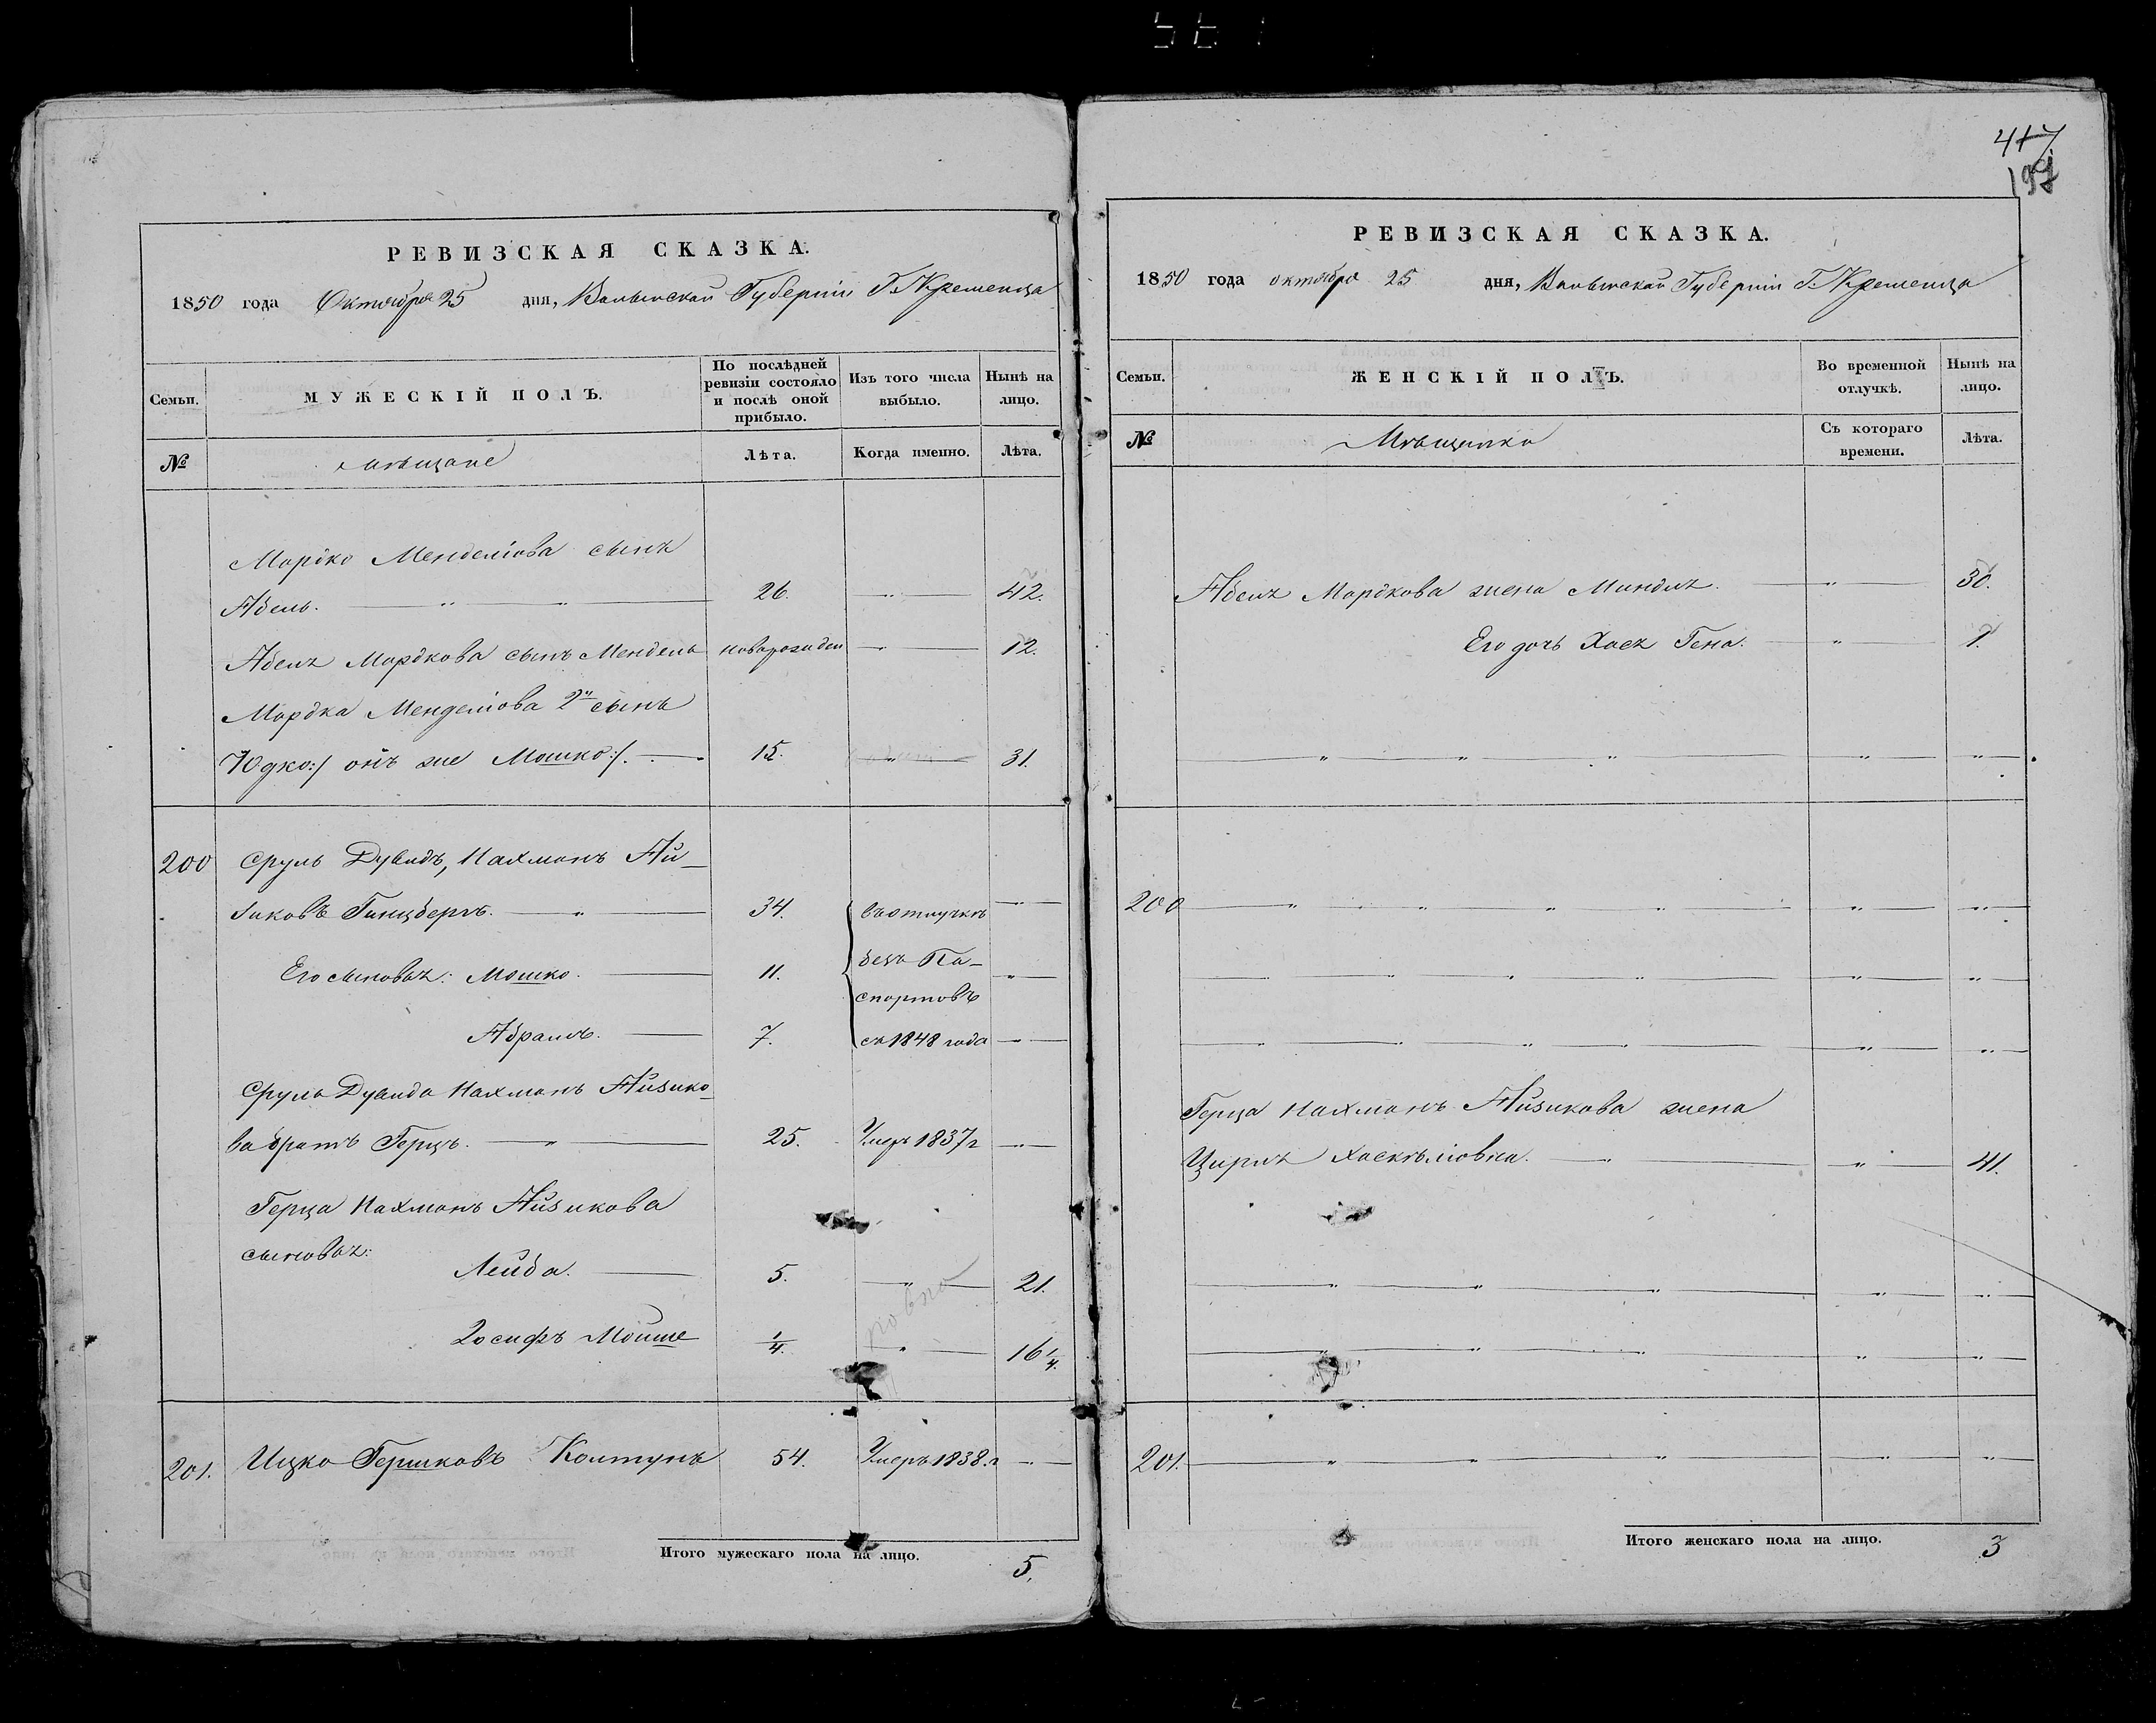 417
РЕВИЗСКАЯ СКАЗКА.
1850 года Октября 25 дня, Волынской Губерніи Г. Кременца
Семьи.
МУЖЕСКІЙ ПОЛЪ.
По послѣдней ревизіи состояло и послѣ оной прибыло.
Изъ того числа выбыло.
Нынѣ на лицо.
№
мѣщане
Лѣта.
Когда именно.
Лѣта.
Мордко Менделіова сынъ
Абель. 26. 42.
Абелz Мордкова сынъ Мендель новорожден 12.
Мордка Менделіова 2й сынъ
Юдко :/ онъ же Мошко :/. 15. 31.
200 Сруль Дувидъ, Нахманъ Ай-
зиковъ Гинцбергъ. 34. въ отлучкѣ
Его сыновья: Мошко. 11. безъ Па-
спортовъ
Абрамъ. 7. съ 1848 года
Сруля Дувида Нахманъ Айзико-
ва братъ Герцъ. 25. Умеръ 1837 г
Герца Нахманъ Айзикова
сыновья:
Лейба. 5. 21.
Іосифъ Мойше 1/4. 16 1/4.
201. Ицко Гершковъ Колтунъ 54. Умеръ 1838. г
Итого мужескаго пола на лицо. 5.
РЕВИЗСКАЯ СКАЗКА.
1850 года октября 25 дня, Волынской Губерніи Г. Кременца
Семьи.
ЖЕНСКІЙ ПОЛЪ.
Во временной отлучкѣ.
Нынѣ на лицо.
№
Мѣщанка
Съ котораго времени.
Лѣта.
Абеля Мордкова жена Миндля. 30.
Его дочь Хая Гена. 1.
200
Герца Нахманъ Айзикова жена
Цирля Хаскѣліовна. 41.
201.
Итого женскаго пола на лицо. 3